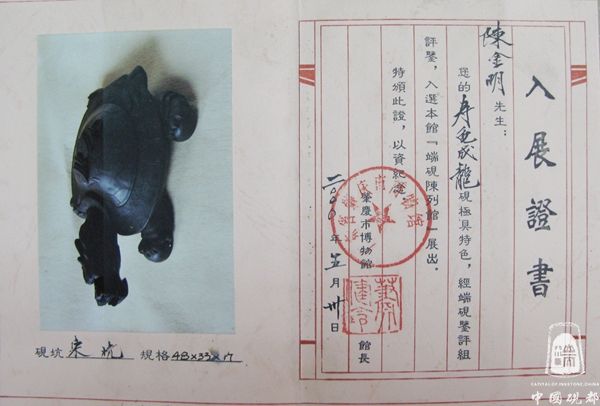 入展證書
陳金明先生：
您的寿龟成龍硯極具特色，經端硯鑒評組
評鑒，入選本館「端硯陳列館」展出。
特頒此證，以資紀念
肇慶市博物館 館長
二〇〇〇年五月卅日
硯坑 宋坑 規格 48×33×17
CAPITAL OF INKSTONE, CHINA
中國硯都